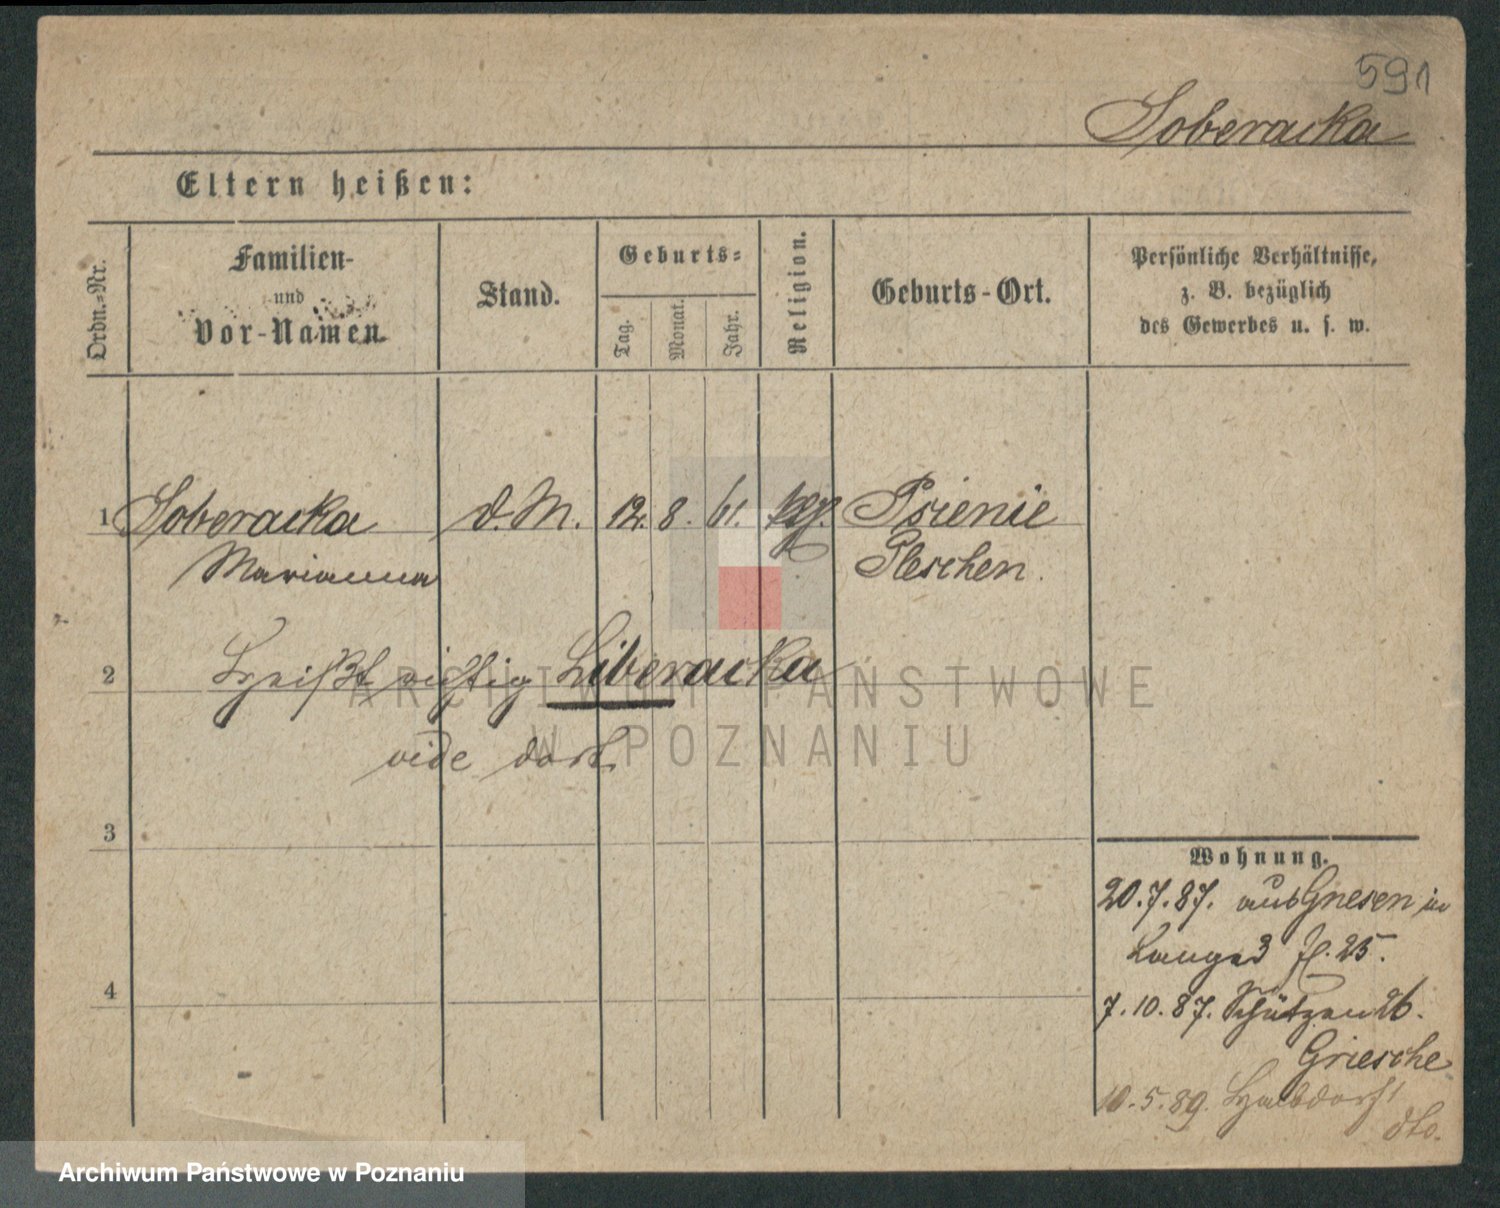 591
Soberacka
Eltern heißen:
Ordn.=Nr.
Familien-
und
Vor-Namen.
Stand.
Geburts=
Tag.
Monat.
Jahr.
Religion.
Geburts-Ort.
Persönliche Verhältnisse,
z. B. bezüglich
des Gewerbes u. s. w.
1 Soberacka d. M. 12. 8. 61. Psienie
Marianna Pleschen.
2 Heißt richtig Liberacka
vide dort
ARCHIWUM PAŃSTWOWE
W POZNANIU
3
Wohnung.
20.7.87. aus Gnesen in
25.
4
7.10.87. Schützen 26.
Griesche
10.5.89. Halbdorf 1
dto.
Archiwum Państwowe w Poznaniu